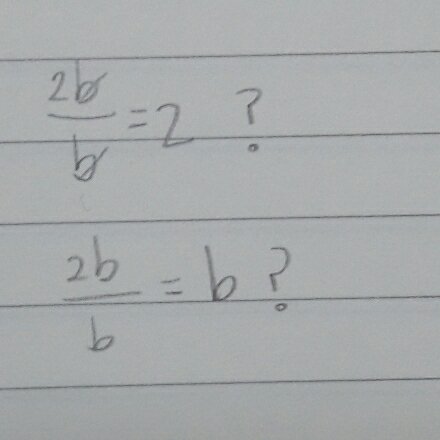 2b/b = 2 ?
2b/b = b ?